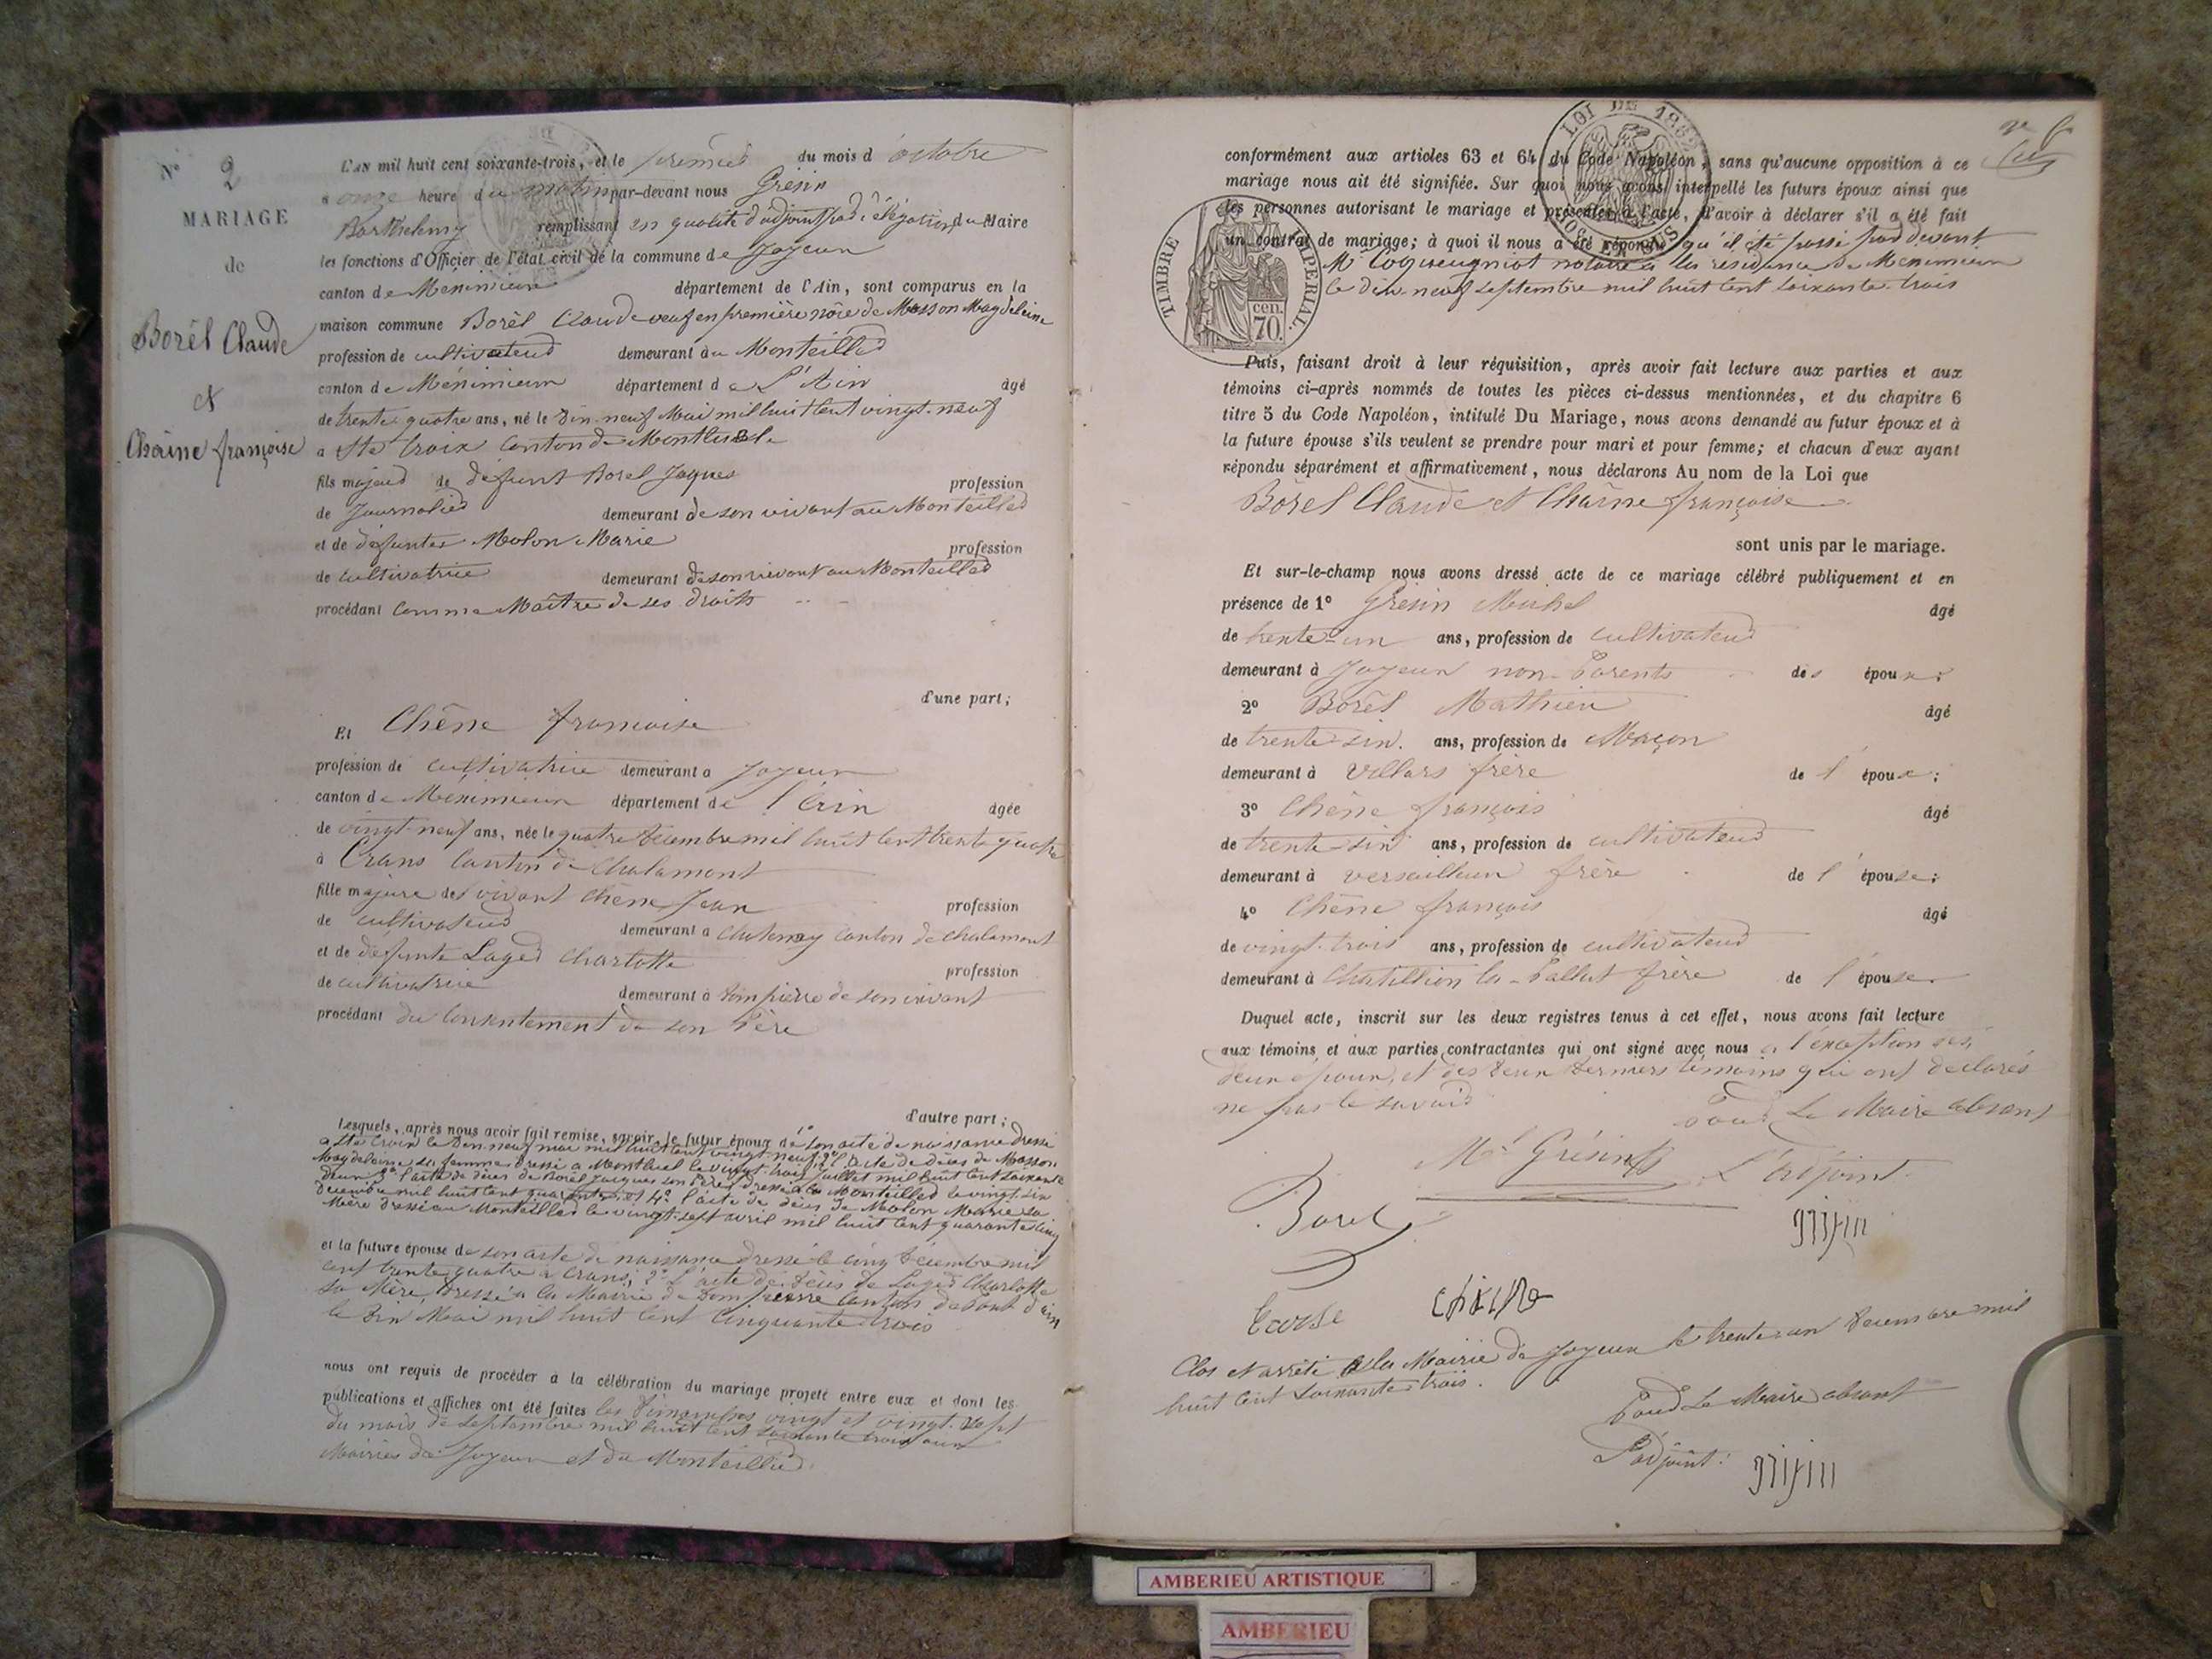 N° 2
MARIAGE
de
Borel Claude
et
Chaine françoise
L'AN mil huit cent soixante-trois, et le premier du mois d'octobre
a onze heure du matin par-devant nous Grésin
Barthelemy remplissant en qualité d'adjoint par délégation du Maire
les fonctions d'Officier de l'état civil de la commune de Joyeux
canton de Meximieux département de l'Ain, sont comparus en la
maison commune Borel Claude veuf en première nôce de Masson Magdeleine
profession de cultivateur demeurant au Monteillier
canton de Meximieux département de L'Ain âgé
de trente quatre ans, né le dix-neuf Mai mil huit cent vingt-neuf
a Ste Croix Canton de Montluel
fils majeur de défunt Borel Jaques profession
de Journalier demeurant de son vivant au Monteillier
et de défunte Molon Marie profession
de cultivatrice demeurant de son vivant au Monteillier
procédant comme Maître de ses droits
d'une part;
Et Chêne françoise
profession de cultivatrice demeurant a Joyeux
canton de Meximieux département de l'Ain âgée
de vingt-neuf ans, née le quatre décembre mil huit cent trente quatre
à Crans Canton de Chalamont
fille majure de vivant Chêne Jean profession
de cultivateur demeurant a Chatenay canton de chalamont
et de défunte Lager Charlotte profession
de cultivatrice demeurant à Dompierre de son vivant
procédant du Consentement de son Père
d'autre part;
Lesquels, après nous avoir fait remise, savoir, le futur époux de 1° son acte de naissance dressé
a Ste Croix le dix-neuf mai mil huit cent vingt neuf; 2° l'acte de décès de Masson
Magdeleine sa femme dressé a Montluel le vingt trois Juillet mil huit cent soixante
deux; 3° l'acte de décès de Borel Jacques son Père dressé a Monteillier le vingt-six
décembre mil huit cent quarante et 4° l'acte de décès de Molon Marie sa
Mère dressé au Monteillier le vingt-sept avril mil huit cent quarante cinq
et la future épouse de son acte de naissance dressé le cinq décembre mil
cent trente quatre a Crans; 2° L'acte de décès de Lager Charlotte
sa Mère, dressé a la Mairie de Dompierre Canton de Pont d'ain
le Six Mai mil huit cent Cinquante-trois
nous ont requis de procéder à la célébration du mariage projeté entre eux et dont les
publications et affiches ont été faites les dimanches vingt et vingt-sept
du mois de septembre mil huit cent soixante trois aux
Mairies de Joyeux et du Monteillier.
LOI DE 1862
conformément aux articles 63 et 64 du Code Napoléon, sans qu'aucune opposition à ce
mariage nous ait été signifiée. Sur quoi nous avons interpellé les futurs époux ainsi que
les personnes autorisant le mariage et présentes à l'acte, d'avoir à déclarer s'il a été fait
un contrat de mariage; à quoi il nous a été répondu qu'il été passé par devant
Me Coqueugniot notaire à la résidence de Meximieux
le dix-neuf septembre mil huit cent soixante-trois
TIMBRE IMPERIAL.
cen.
70.
Puis, faisant droit à leur réquisition, après avoir fait lecture aux parties et aux
témoins ci-après nommés de toutes les pièces ci-dessus mentionnées, et du chapitre 6
titre 5 du Code Napoléon, intitulé Du Mariage, nous avons demandé au futur époux et à
la future épouse s'ils veulent se prendre pour mari et pour femme; et chacun d'eux ayant
répondu séparément et affirmativement, nous déclarons Au nom de la Loi que
Borel Claude et Chaine françoise
sont unis par le mariage.
Et sur-le-champ nous avons dressé acte de ce mariage célébré publiquement et en
présence de 1° Grésin Michel âgé
de trente-un ans, profession de cultivateur
demeurant à Joyeux non-Parents des époux;
2° Borel Mathieu âgé
de trente-six. ans, profession de Maçon
demeurant à Villars frère de l'époux;
3° Chêne françois âgé
de trente-six ans, profession de cultivateur
demeurant à versailleux frère de l'épouse;
4° Chêne françois âgé
de vingt-trois ans, profession de cultivateur
demeurant à Chatillion la-Pallut frère de l'épouse.
Duquel acte, inscrit sur les deux registres tenus à cet effet, nous avons fait lecture
aux témoins et aux parties contractantes qui ont signé avec nous a l'exception des
deux époux, et des deux derniers témoins qui ont déclarés
ne pas le savoir
Pour Le Maire absant
Mel Grésin L'adjoint.
Borel grésin
Clos et arrêté a la Mairie de Joyeux le trente-un décembre mil
huit cent soixante-trois.
Pour Le Maire absant
L'adjoint: grésin
AMBERIEU ARTISTIQUE
AMBERIEU